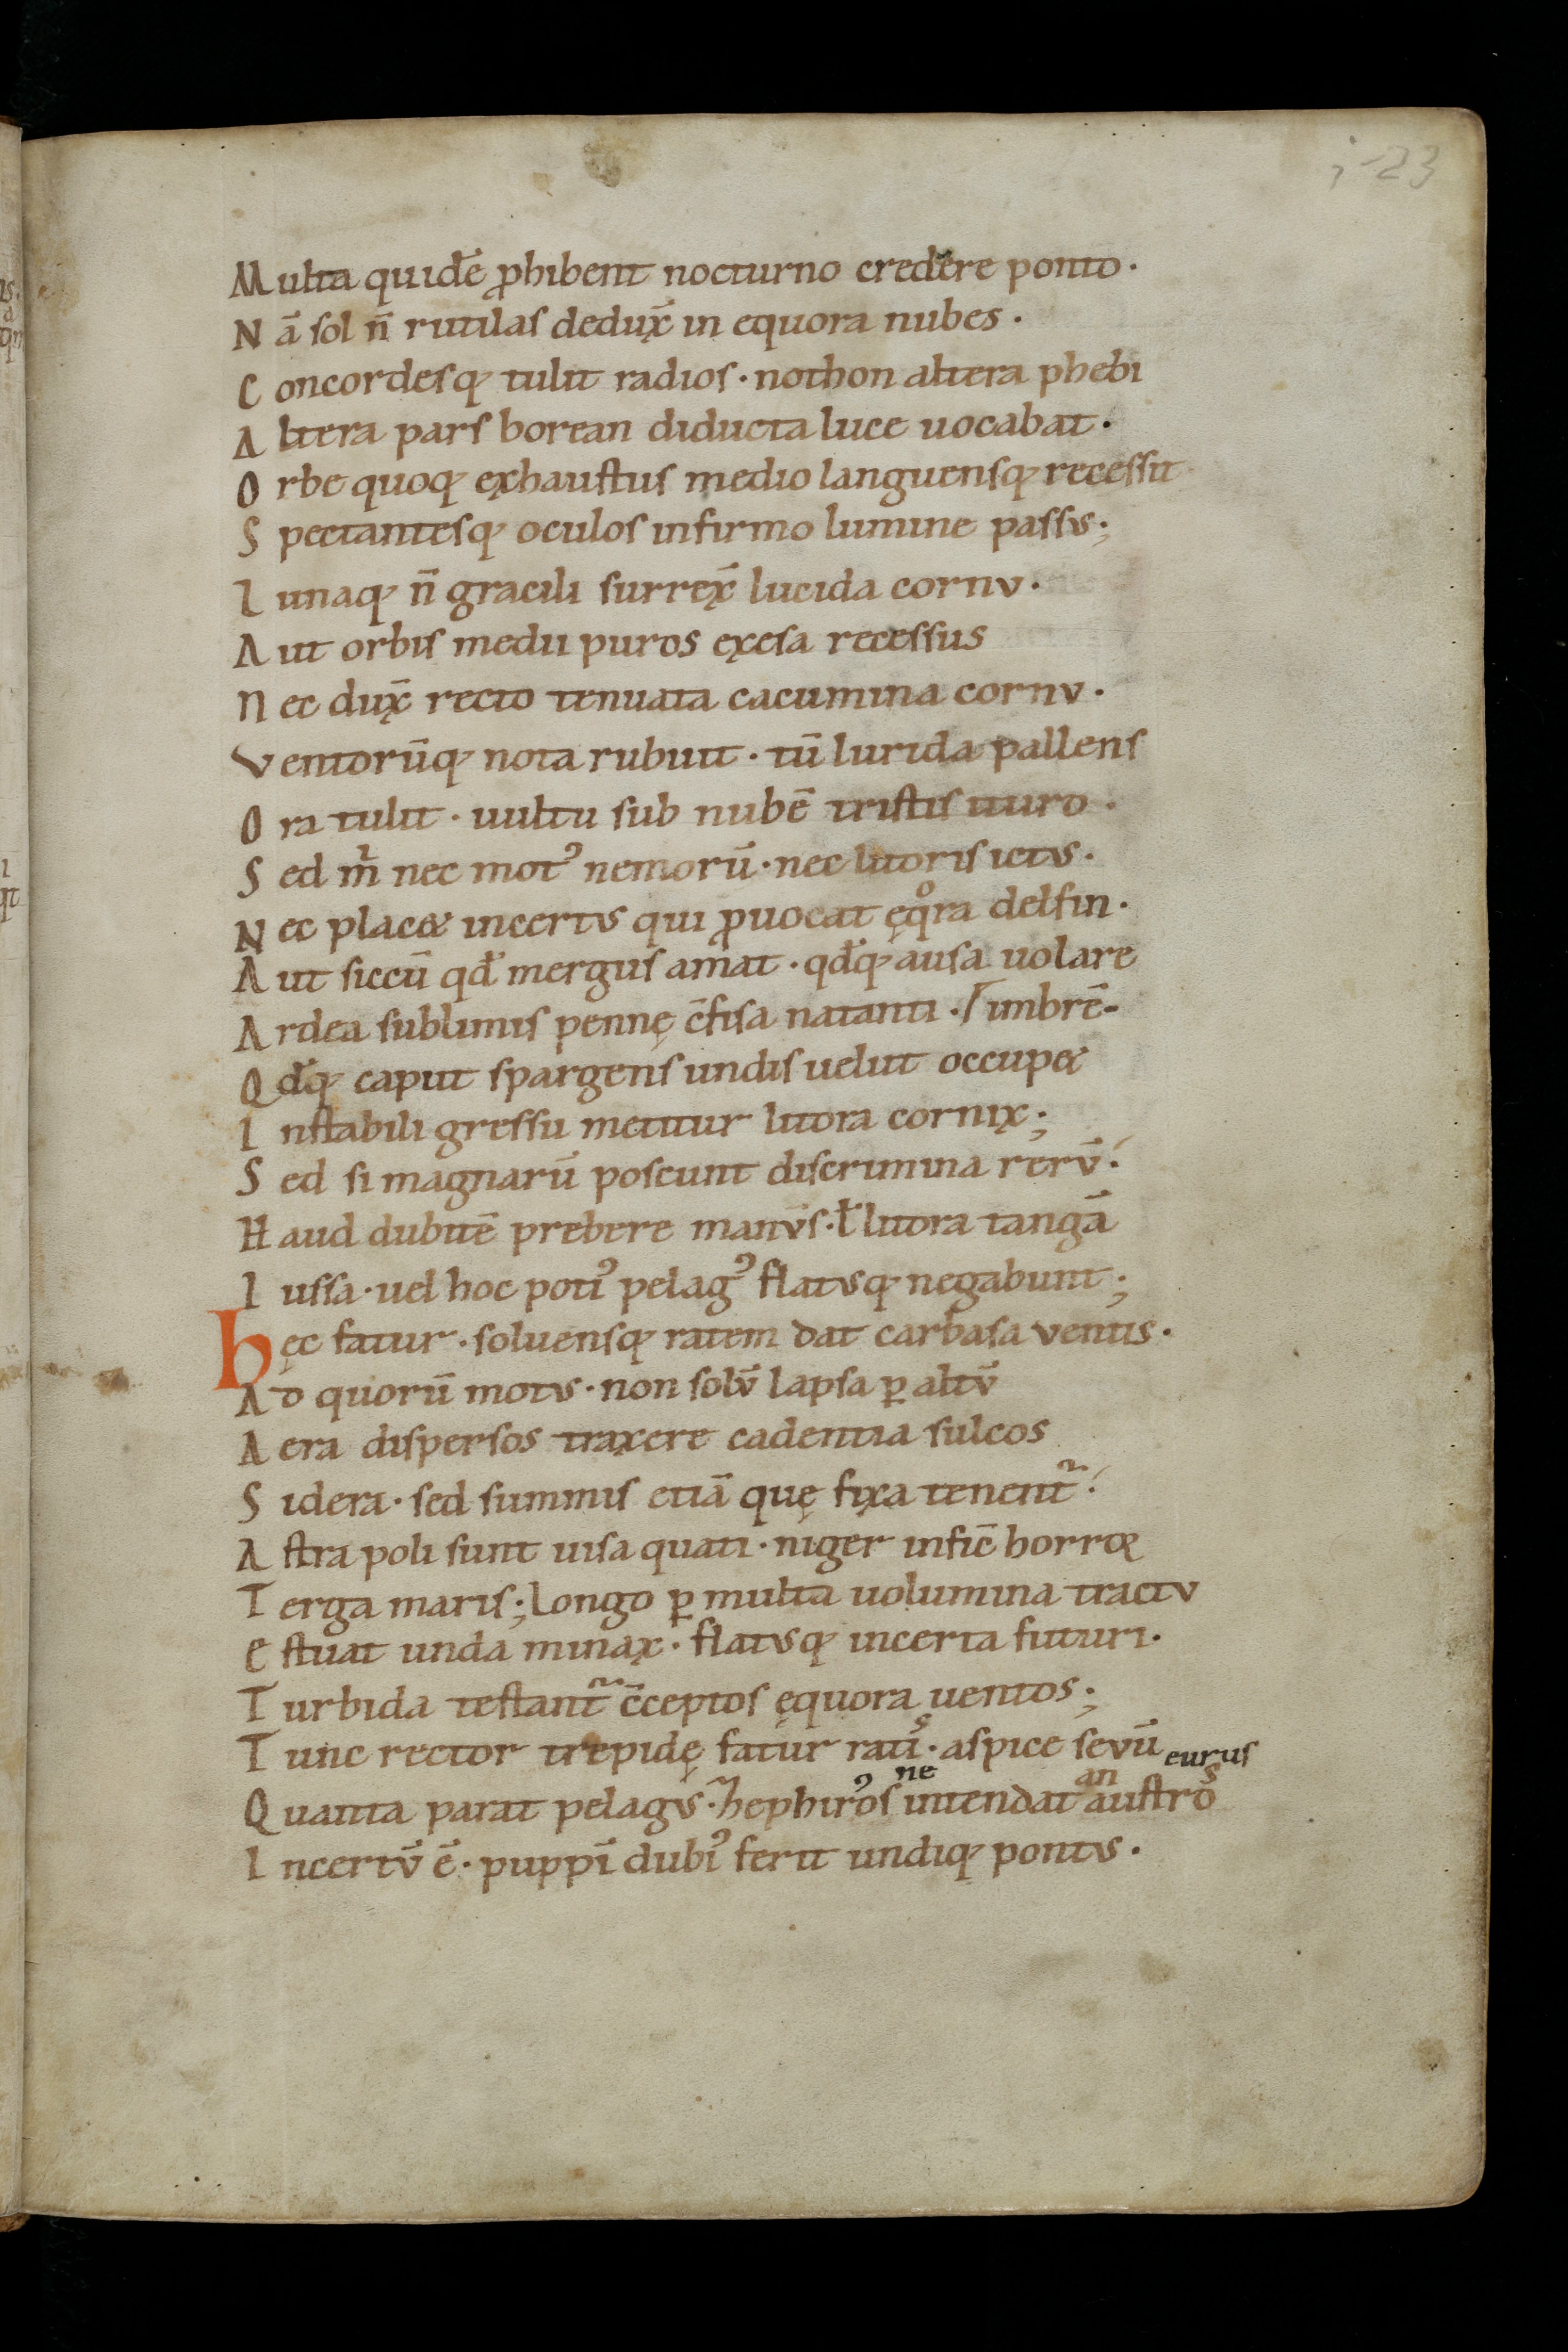 i-23
Multa quidē ꝓhibent nocturno credere ponto·
Nā sol n̄ rutilas dedux̄ in equora nubes·
Concordesq; tulit radios· nothon altera phebi
Altera pars borean diducta luce uocabat·
Orbe quoq; exhaustus medio languensq; recessit
Spectantesq; oculos infirmo lumine passus;
Lunaq; n̄ gracili surrex̄ lucida cornu·
Aut orbis medii puros exesa recessus
Nec dux̄ recto tenuata cacumina cornu·
Ventorūq; nota rubuit· tū lurida pallens
Ora tulit· uultu sub nubē tristis ituro·
Sed m̄ nec motꝰ nemorū· nec litoris ictus·
Nec plac& incertus qui ꝓuocat ęqͦra delfin·
Aut siccū qđ mergus amat· qđq; ausa uolare
Ardea sublimis pennę c̄fisa natanti· / imbrē-
Qđq; caput spargens undis uelut occup&
Instabili gressu metitur litora cornix;
Sed si magnarū poscunt discrimina rerū·
Haud dubitē prebere manūs· ł litora tangā
Iussa· uel hoc potiꝰ pelagꝰ flatusq; negabunt;
hęc fatur· soluensq; ratem dat carbasa ventis·
Ad quorū motus· non solū lapsa ꝑ altū
Aera dispersos traxere cadentia sulcos
Sidera· sed summis etiā quę fixa tenent᷑·
Astra poli sunt uisa quati· niger infic̄ horror
Terga maris; Longo ꝑ multa uolumina tractu
Estuat unda minax· flatusq; incerta futuri·
Turbida testant᷑ c̄ceptos ęquora uentos;
Tunc rector trepidę fatur ratis· aspice sevū
ne an eurus
Quanta parat pelagus· Zephirꝰos intendat austros
Incertū ē· puppī dubiꝰ ferit undiq; pontus·